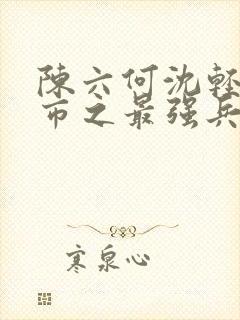 陳六何沈輕
市之最强兵
寒泉心